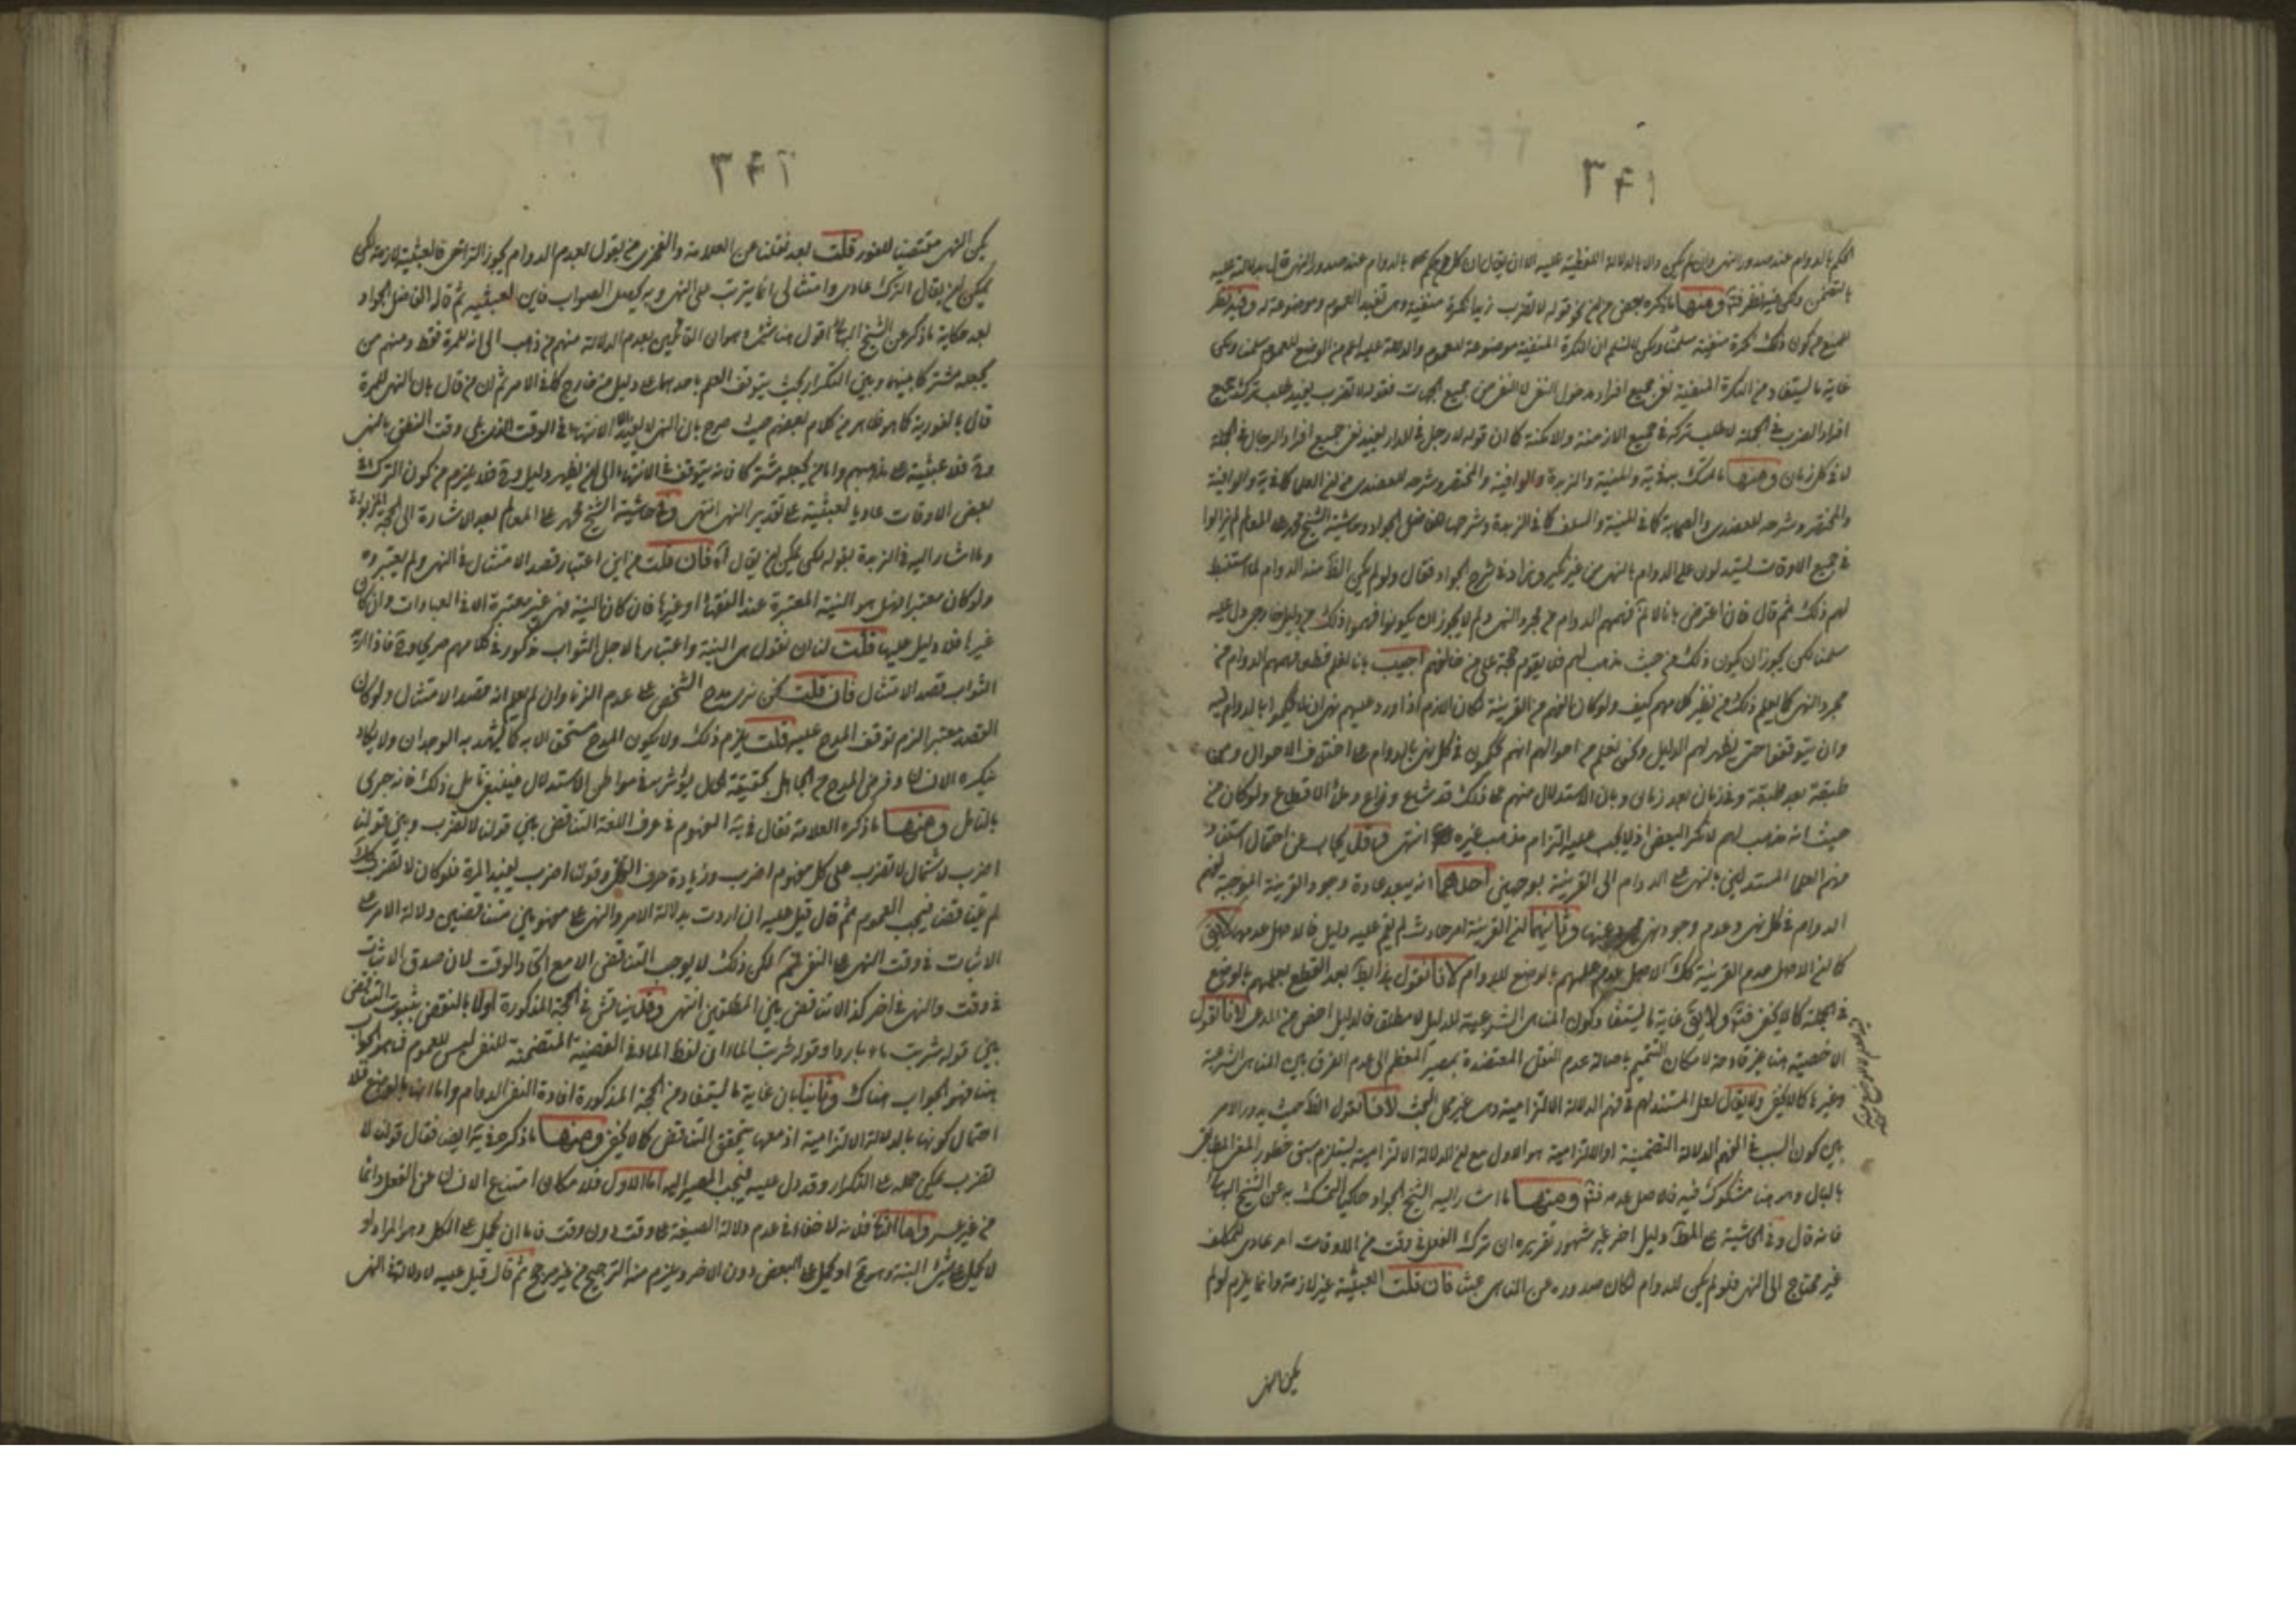 الحكم بالدوام عند صدور النهى وان لم يكن دالا بالدلالة اللفظية عليه الا ان يقال ان كل بالدوام عند صدور النهى قال بدلالته عليه
بالتضمن ولكن فيه نظر فتأمل ومنها ما ذكره بعض من ان نحو قوله لا تضرب زيدا نكرة منفية وهى تفيد العموم وموضوعة له وفيه نظر
للمنع من كون ذلك نكرة منفية سلمنا ولكن لا نسلم ان النكرة المنفية موضوعة للعموم والدلالة عليه اعم من الوضع للعموم سلمنا ولكن
غاية ما يستفاد من النكرة المنفية نفى جميع افراد مدخول النفى لا النفى من جميع الجهات فقوله لا تضرب يفيد طلب ترك جميع
افراد الضرب فى الجملة لا طلب تركه فى جميع الازمنة والامكنة كما ان قوله لا رجل فى الدار يفيد نفى جميع افراد الرجال فى الجملة
لا فى كل زمان ومنها ما تمسك به فى والمنية والزبدة والوافية والمختصر وشرحه للعضدى من ان العلماء كما فى والوافية
والمختصر وشرحه للعضدى والصحابة كما فى المنية والسلف كما فى الزبدة وشرحها الفاضل الجواد وحاشية الشيخ محمد على المعالم لم يزالوا
فى جميع الاوقات يستدلون على الدوام بالنهى من غير نكير وزاد فى شرح الجواد فقال ولو لم يكن الظ منه الدوام لما استنبط
لهم ذلك ثم قال فان اعترض بانا لا نم فهمهم الدوام من مجرد النهى ولم لا يجوز ان يكونوا فهموا ذلك من دليل خارجى دل عليه
سلمنا لكن يجوز ان يكون ذلك من حيث مذهب لهم فلا يقوم حجة على من خالفهم اجيب بانا نعلم قطعا فهمهم الدوام من
مجرد النهى كما يعلم ذلك من نظير كلامهم كيف ولو كان فهم من القرينة لكان اللازم اذا ورد عليهم نهى ان لا يحكموا بالدوام فيه
وان يتوقفوا حتى يظهر لهم الدليل ولكن نعلم من احوالهم انهم يحكمون فى كل نهى بالدوام على اختلاف الاحوال ومن
طبقة بعد طبقة وفى زمان بعد زمان وبان الاستدلال منهم بذلك قد شاع وذاع وملأ الاقطاع ولو كان من
حيث انه مذهب لهم لانكر البعض اذ لا يجب عليه التزام مذهب غيره انتهى وقد يجاب عن احتمال استناد
فهم العلماء المستدلين بالنهى على الدوام الى القرينة بوجهين احدهما انه يبعد عادة وجود القرينة الموجبة لفهم
الدوام فى كل نهى وعدم وجود نهى مجرد عنها وثانيهما ان القرينة امر حادث لم يقم عليه دليل فالاصل عدمها لا يق
كما ان الاصل عدم القرينة كك الاصل عدم علمهم بالوضع للدوام لانا نقول هذا بط بعد القطع بعلمهم بالوضع
فى الجملة كما لا يخفى فتأمل ولا يق غاية ما يستفاد كون المناهى الشرعية للدليل لا مطلق فالدليل اخص من المدعى لانا نقول
الاخصية هنا غير قادحة لامكان التتميم باصالة عدم النقل المعتضدة بمصير المعظم الى عدم الفرق بين المناهى الشرعية
وغيرها كما لا يخفى ولا يقال لعل المستند لهم فى فهم الدلالة الالتزامية وهى غير محل البحث لانا نقول الظ حيث يدور الامر
بين كون السبب فى الفهم الدلالة التضمنية او الالتزامية هو الاول مع ان الدلالة الالتزامية يستلزم سبق خطور المعنى المطابقى
بالبال وهو هنا مشكوك فيه فالاصل عدمه فتأمل ومنها ما اشار اليه الشيخ الجواد حاكيا التمسك به عن الشيخ البهائى
فانه قال وفى الحاشية على المط دليل اخر غير مشهور تقريره ان ترك الفعل فى وقت من الاوقات امر عادى للمكلف
غير محتاج الى النهى فلو لم يكن للدوام لكان صدوره عن الناهى عبث فان قلت العبثية غير لازمة وانما يلزم لو لم
يكن النهى
يكن النهى مقتضيا للفور قلت بعد نقلنا عن العلامة والفخرى من يقول بعدم الدوام يجوز التراخى فالعبثية لازمة لكن
يمكن ان يقال الترك عادى وامتثالى انما يترتب على النهى وبه يحصل الصواب فاين العبثية ثم قال الفاضل الجواد
بعد حكاية ما ذكر عن الشيخ البهائى اقول هنا شىء هو ان القائلين بعدم الدلالة منهم من ذهب الى انه للمرة فقط ومنهم من
يجعله مشتركا بينها وبين التكرار بحيث يتوقف العلم باحدهما على دليل من خارج كما فى الامر ثم ان من قال بان النهى للمرة
قال بالفورية كما هو ظاهر من كلام بعضهم حيث صرح بان النهى لا يفيد الا الانتهاء فى الوقت الذى يلى وقت النطق بالنهى
وح فلا عبثية على مذهبهم واما من يجعله مشتركا فانه يتوقف فى الانتهاء الى ان يظهر دليل وح فلا يلزم من كون الترك فى
بعض الاوقات عاديا لعبثية على تقدير النهى انتهى وفى حاشية الشيخ محمد على المعالم بعد الاشارة الى الحجة المزبورة
وما اشار اليه فى الزبدة بقوله لكن يمكن ان يقال اه فان قلت من اين اعتبار قصد الامتثال فى النهى ولم يعتبروه
ولو كان معتبرا فهل هو النية المعتبرة عند الفقهاء او غيرها فان كان النية فهى غير معتبرة الا فى العبادات وان كان
غيرها فلا دليل عليها قلت لنا ان نقول هى النية واعتبارها لاجل الثواب مذكور فى كلامهم صريحا وح فاذا اريد
الثواب قصد الامتثال فان قلت نحن نرى مدح الشخص على عدم الزنا وان لم يعلم انه قصد الامتثال ولو كان
القصد معتبرا لزم توقف المدح عليه قلت يلزم ذلك ولا يكون المدح مستحق الا به كما يشهد به الوجدان ولا يكاد
ينكره الانسان وفرض المدح من الجاهل بحقيقة الحال لا يؤثر فى مواطن الاستدلال فينبغى تأمل ذلك فانه حرى
بالتأمل ومنها ما ذكره العلامة فقال فى يه المفهوم فى عرف اللغة التناقض بين قولنا لا تضرب وبين قولنا
اضرب لاشتمال لا تضرب على كل مفهوم اضرب وزيادة حرف النفى وقولنا اضرب يفيد المرة فلو كان لا تضرب كذلك
لم يتناقضا فيجب العموم ثم قال قيل عليه ان اردت بدلالة الامر والنهى على مفهومين متناقضين دلالة الامر على
الاثبات فى وقت والنهى على النفى فمم لكن ذلك لا يوجب التناقض الا مع اتحاد الوقت لان صدق الاثبات
فى وقت والنهى فى اخر كذا لا تناقض بين المطلقتين انتهى وقد يناقش فى الحجة المذكورة اولا بالنقض بثبوت التناقض
بين قوله شربت ماء باردا وقوله ما شربت الماء اذ لفظ الماء فى القضية المتضمنة للنفى ليس للعموم فما هو الجواب
هنا فهو الجواب هناك وثانيا بان غاية ما يستفاد من الحجة المذكورة افادة النفى الدوام واما انها بالوضع فلا
احتمال كونها بالدلالة الالتزامية اذ معها يتحقق التناقض كما لا يخفى ومنها ما ذكره فى يه ايضا فقال قولنا لا
تضرب يمكن حمله على التكرار وقد دل عليه فيجب المصير اليه اما الاول فلامكان امتناع الانسان عن الفعل دائما
من غير عسر واما الثانى فلانه لا خفاء فى عدم دلالة الصيغة على وقت دون وقت فاما ان يحمل على الكل وهو المراد او
لا يحمل على شىء البتة وهو مح او يحمل على البعض دون الاخر ويلزم منه الترجيح من غير مرجح ثم قال قيل عليه لا دلالة فى النهى